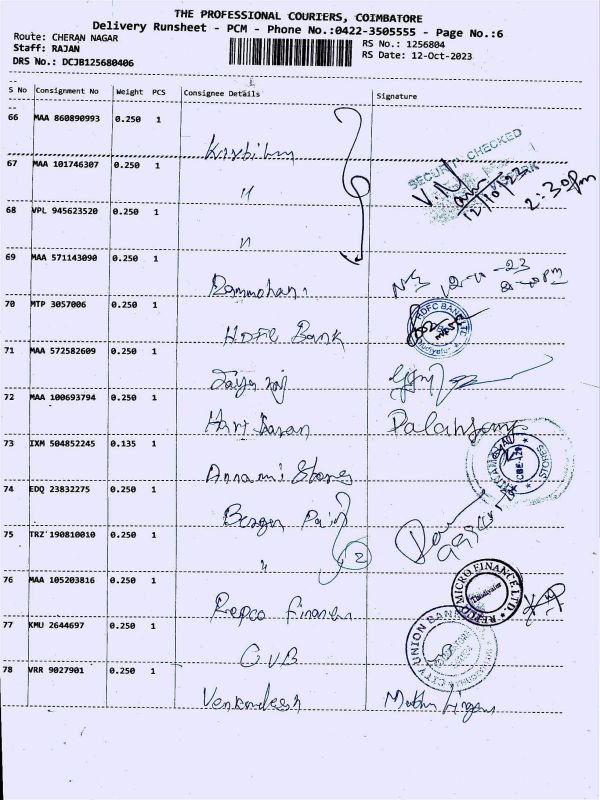 THE PROFESSIONAL COURIERS, COIMBATORE
Delivery Runsheet - PCM - Phone No.:0422-3505555 - Page No.:6
Route: CHERAN NAGAR
RS No.: 1256804
Staff: RAJAN
RS Date: 12-Oct-2023
DRS No.: DCJB125680406
S No Consignment No Weight PCS Consignee Details Signature
66 MAA 860890993 0.250 1
SECURITY CHECKED
67 MAA 101746307 0.250 1 "
12/10/23
2:30pm
68 VPL 945623520 0.250 1 "
69 MAA 571143090 0.250 1 Rammohan
70 MTP 3057006 0.250 1 HDFC Bank
HDFC BANK LTD
71 MAA 572582609 0.250 1
72 MAA 100693794 0.250 1
73 IXM 504852245 0.135 1 Annami Stores
STORES
CBE-129
74 EDQ 23832275 0.250 1 Berger Pain
75 TRZ 190810010 0.250 1 "
2
76 MAA 105203816 0.250 1 Repco Finance
REPCO MICRO FINANCE LTD.
77 KMU 2644697 0.250 1 CUB
CITY UNION BANK
78 VRR 9027901 0.250 1 Venkandesh